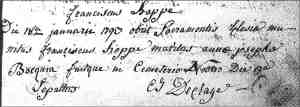 Franciscus Hoppe
Die 18va januarii 1793 obiit Sacramentis Eclesia mu-
nitus franciscus Hoppe maritus annae josepha
fuitque in Cemeterio Nostro Die 19a
Sepultus